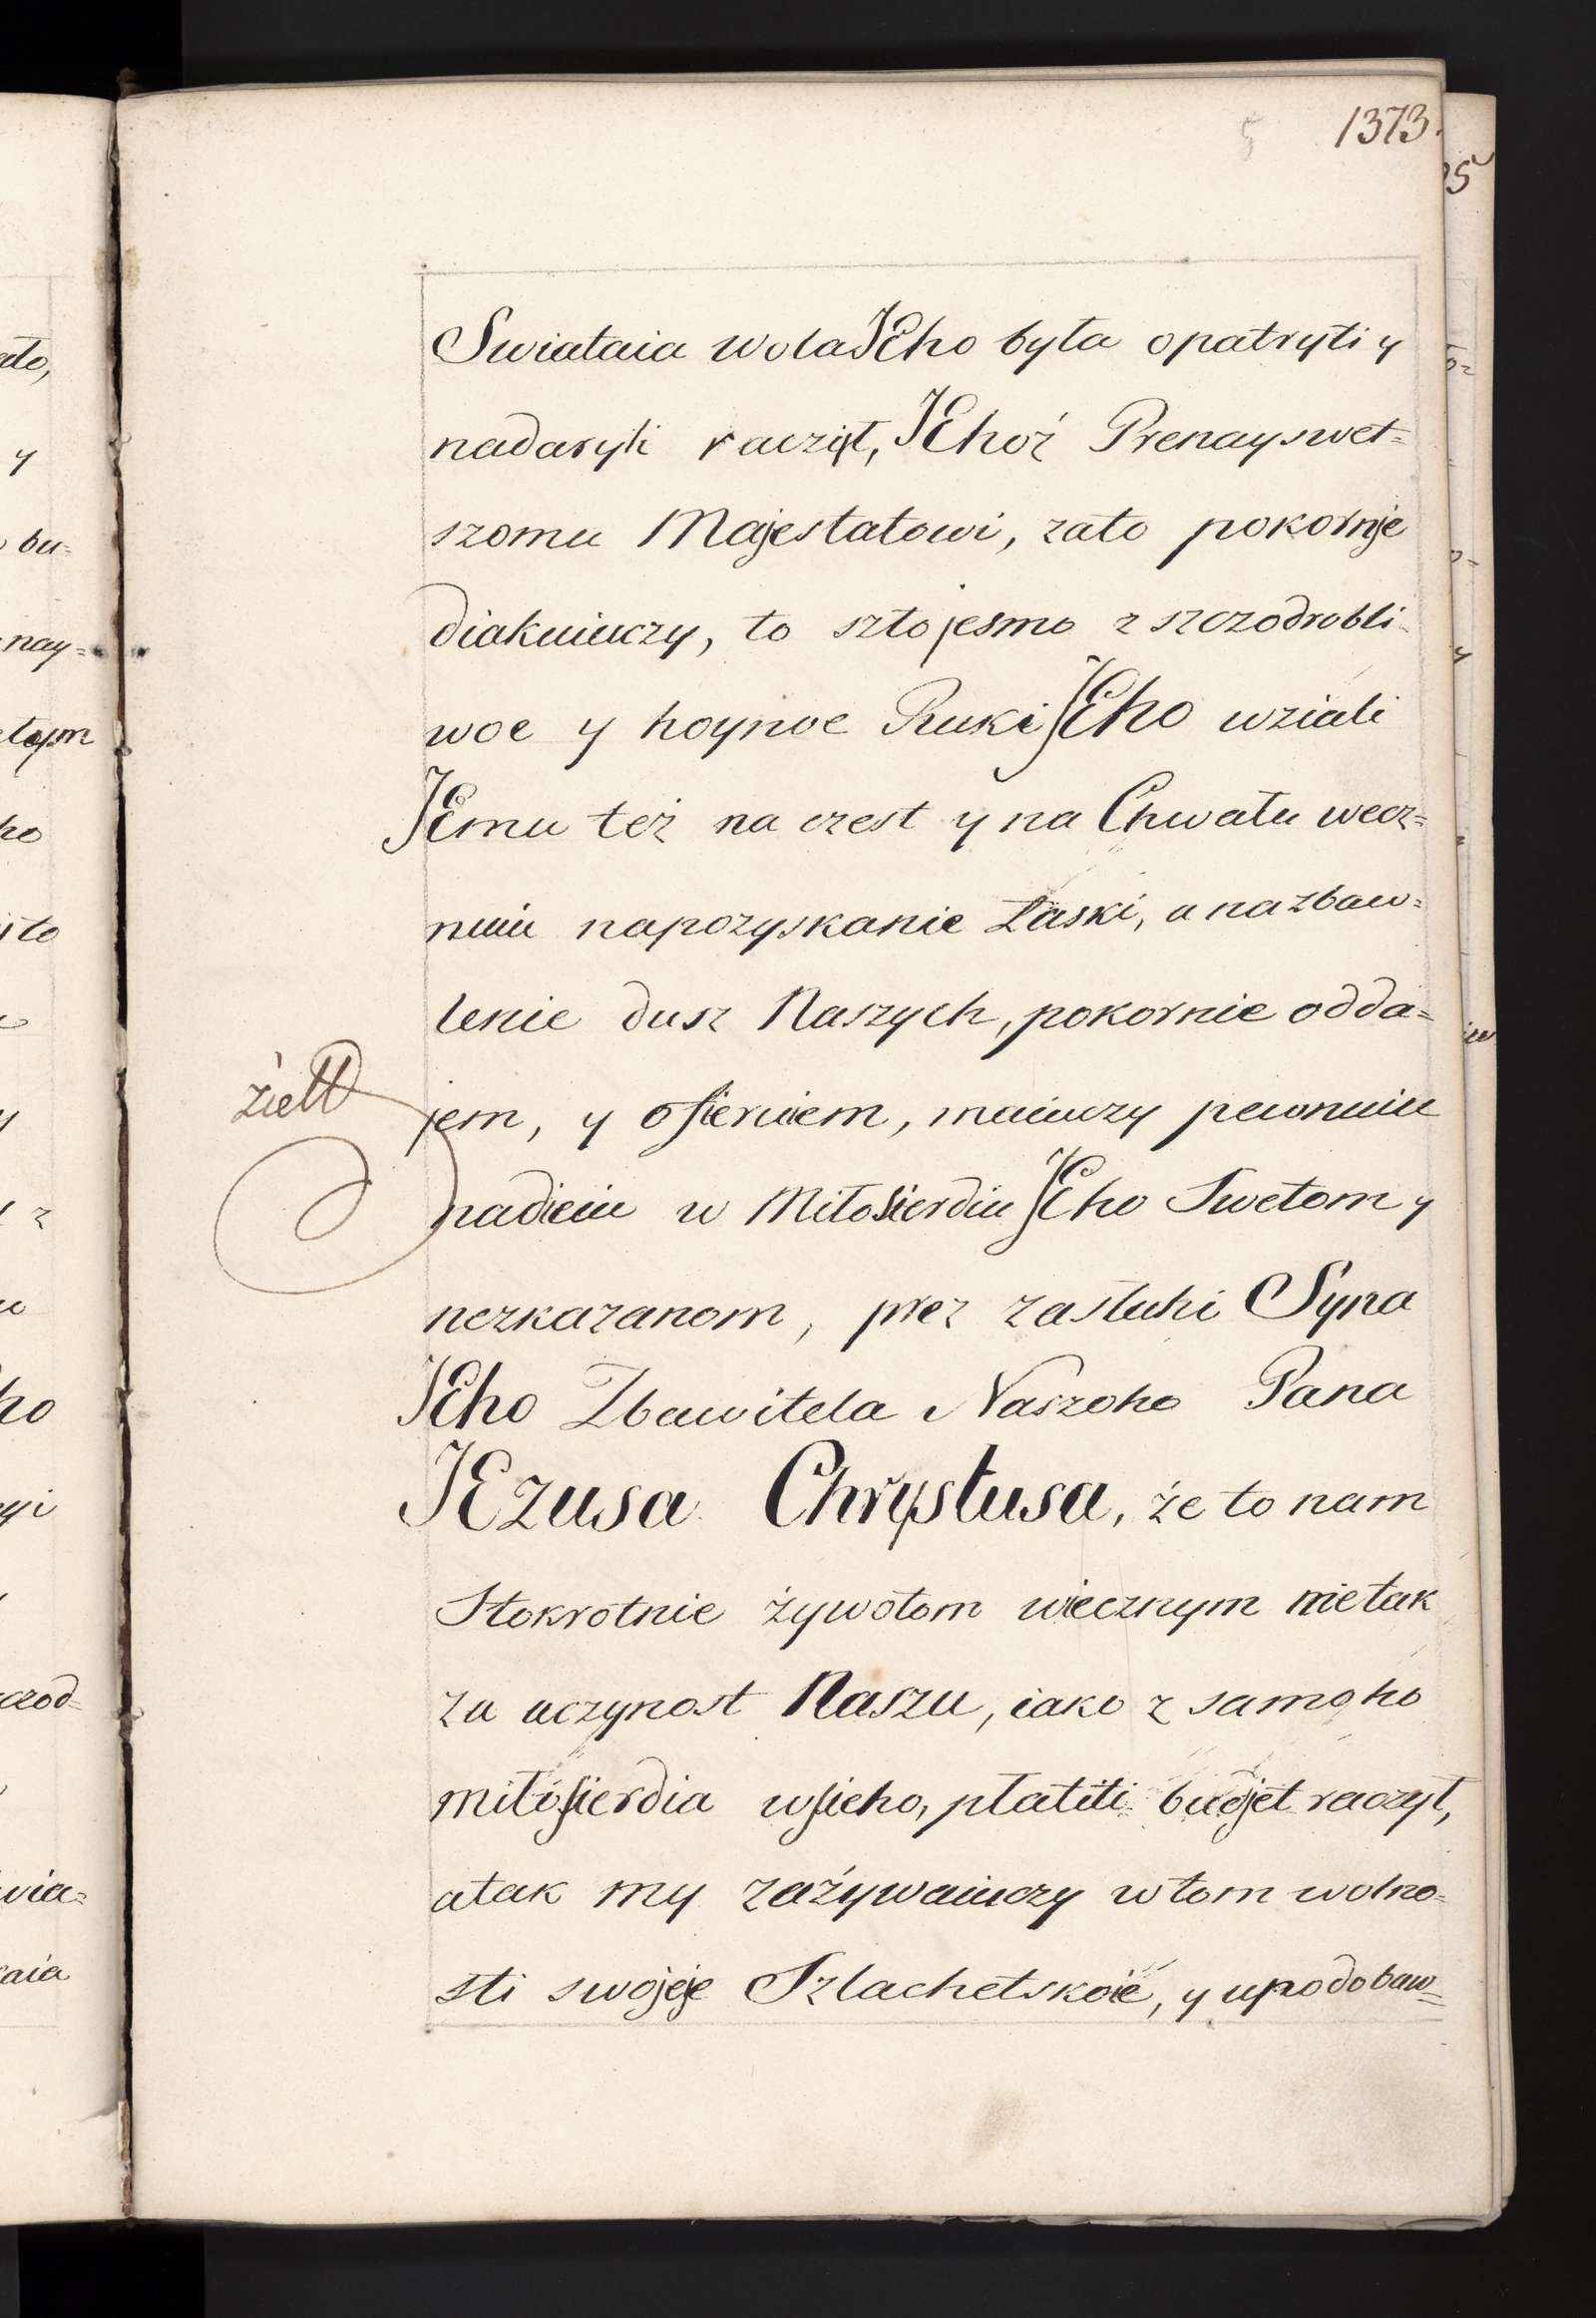 1373.
Swiataia wola JEho była opatryti y
nadaryti raczył, JEhoż Prenayswet=
szomu Majestatowi, zato pokornje
diakuiuczy, to szto jesmo z szczodrobli=
woe y hoynoe Ruki JEho wziali
JEmu też na czest y na Chwału wecz=
nuiu napozyskanie Łaski, a nazbaw=
lenie dusz Naszych, pokornie odda=
jem, y ofieruiem, maiuczy pewnuiu
nadieiu w Miłosierdiu JEho Swetom y
nezkazanom, prez zasłuhi Syna
JEho Zbawitela Naszoho Pana
JEzusa Chrystusa, że to nam
Stokrotnie żywotom wiecznym nie tak
za uczynost Naszu, iako z samoho
miłosierdia wsieho, płatiti budjet raczył,
atak my zażywaiuczy wtom wolno=
sti swojeje Szlachetskoie, y upodobaw=